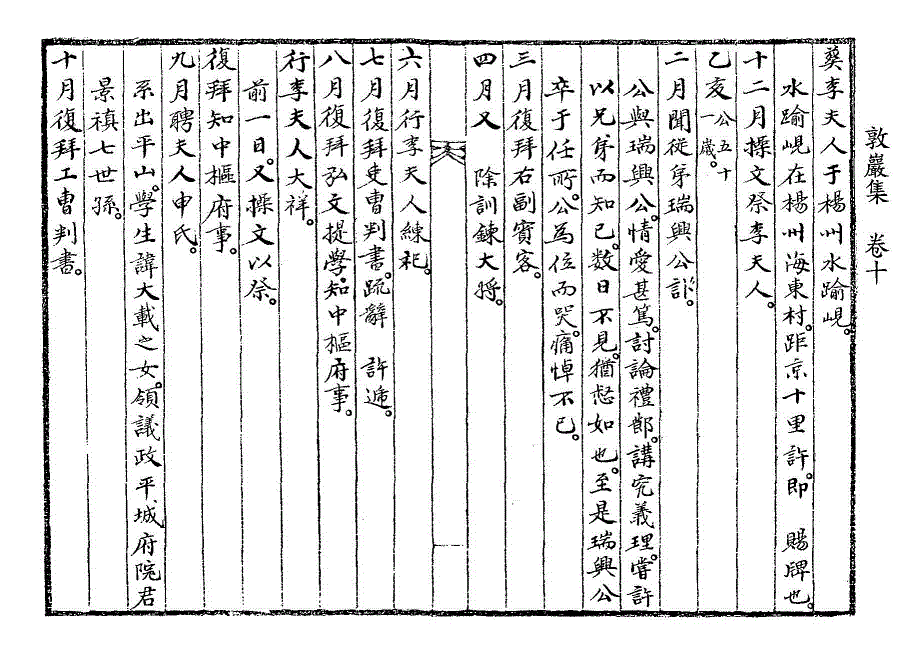 敦巖集　卷十
葬李夫人于楊州水踰峴。
水踰峴在楊州海東村。距京十里許。卽　賜牌也。
十二月。操文祭李夫人。
乙亥公五十一歲。
二月。聞從弟瑞興公訃。
公與瑞興公。情愛甚篤。討論禮鄭。講究義理。嘗許
以兄弟而知己。數日不見。猶愁如也。至是瑞興公
卒于任所。公爲位而哭。痛悼不已。
三月。復拜右副賓客。
四月。又　除訓鍊大將。
六月。行李夫人練祀。
七月。復拜吏曹判書。疏辭　許遞。
八月。復拜弘文提學。知中樞府事。
行李夫人大祥。
前一日。又操文以祭。
復拜知中樞府事。
九月。聘夫人申氏。
系出平山。學生諱大載之女。領議政平城府院君
景禛七世孫。
十月。復拜工曹判書。
一